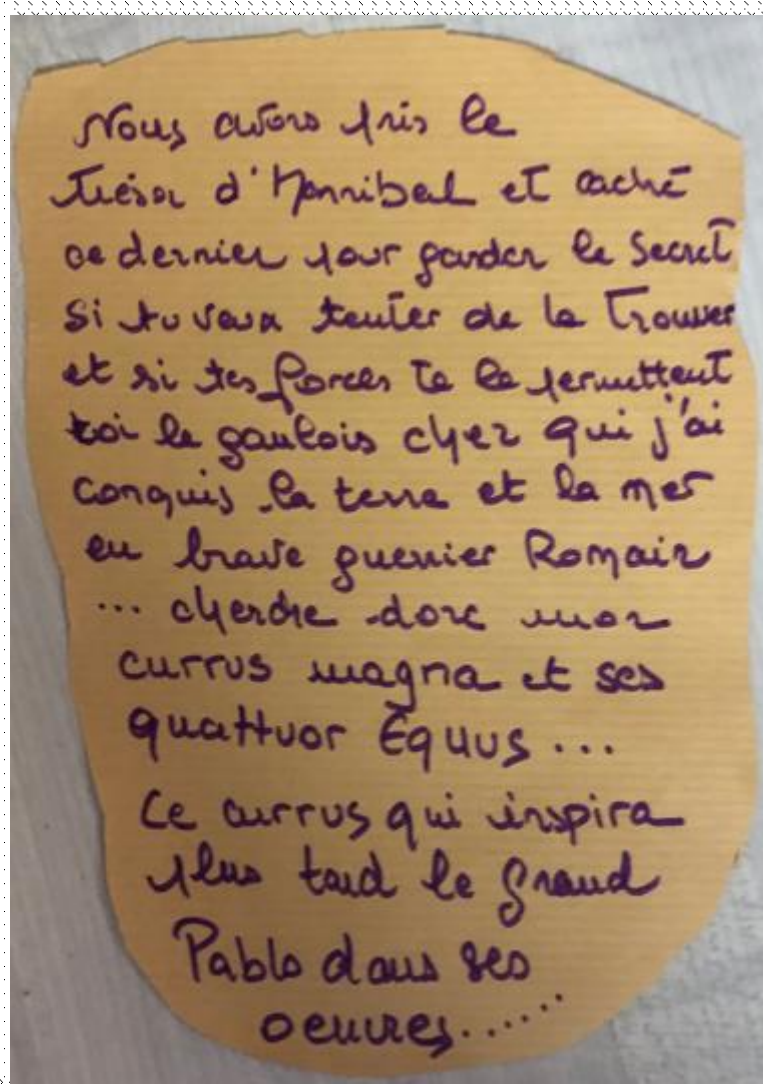 Nous avons pris le
trésor d'Hannibal et caché
ce dernier pour garder le secret
Si tu veux tenter de le trouver
et si tes forces te le permettent
toi le gaulois chez qui j'ai
conquis la terre et la mer
en brave guerrier Romain
... cherche donc mon
currus magna et ses
quattuor Equus ...
Ce currus qui inspira
plus tard le grand
Pablo dans ses
oeuvres......